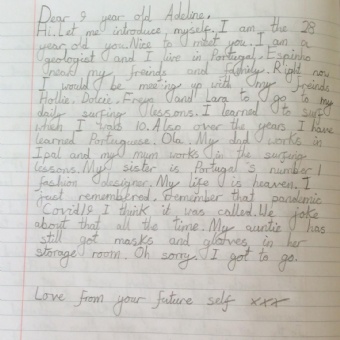 Dear 9 year old Adeline,
Hi. Let me introduce myself. I am the 28
year old you. Nice to meet you. I am a
geologist and I live in Portugal, Espinho
near my freinds and family. Right now
I would be meeting up with my freinds
Hollie, Dolcie, Freya and Lara to go to my
daily surfing lessons. I learned to surf
which I was 10. Also over the years I have
learned Portuguese. Ola. My dad works in
Ipal and my mum works in the surfing
lessons. My sister is Portugal's number 1
fashion designer. My life is heaven. I
just remembered. Remember that pandemic
Covid19 I think it was called. We joke
about that all the time. My auntie has
still got masks and gloves in her
storage room. Oh sorry. I got to go.
Love from your future self xxx